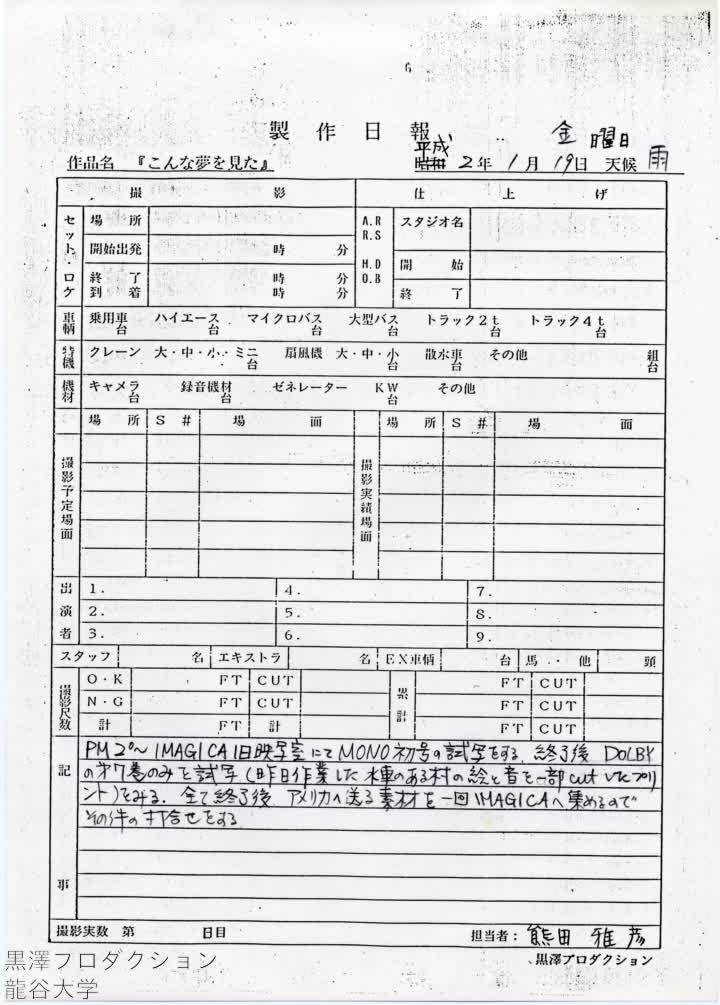 製作日報
金曜日
作品名 『こんな夢を見た』 平成 昭和 2年 1月 19日 天候 雨
撮影 仕上げ
セット・ロケ 場所 A.R R.S スタジオ名
開始出発 時 分
H.D O.B 開始
終了 時 分
到着 時 分 終了
車輌 乗用車 台 ハイエース 台 マイクロバス 台 大型バス 台 トラック2t 台 トラック4t 台
特機 クレーン 大・中・小・ミニ 台 扇風機 大・中・小 台 散水車 台 その他 組 台
機材 キャメラ 台 録音機材 台 ゼネレーター KW 台 その他
撮影予定場面 場所 S# 場面 撮影実績場面 場所 S# 場面
出演者 1. 4. 7.
2. 5. 8.
3. 6. 9.
スタッフ 名 エキストラ 名 EX車輌 台 馬・他 頭
撮影尺数 O・K FT CUT 累計 FT CUT
N・G FT CUT FT CUT
計 FT 計 FT CUT
記事
PM2°°〜 IMAGICA旧映写室にてMONO初号の試写をする。終了後 DOLBY
の才7巻のみを試写(昨日作業した水車のある村の絵と音を一部cutしたプリ
ント)をみる。全て終了後、アメリカへ送る素材を一回IMAGICAへ集めるので
その件の打合せをする。
撮影実数 第 日目 担当者: 熊田雅彦
黒澤プロダクション
黒澤プロダクション
龍谷大学